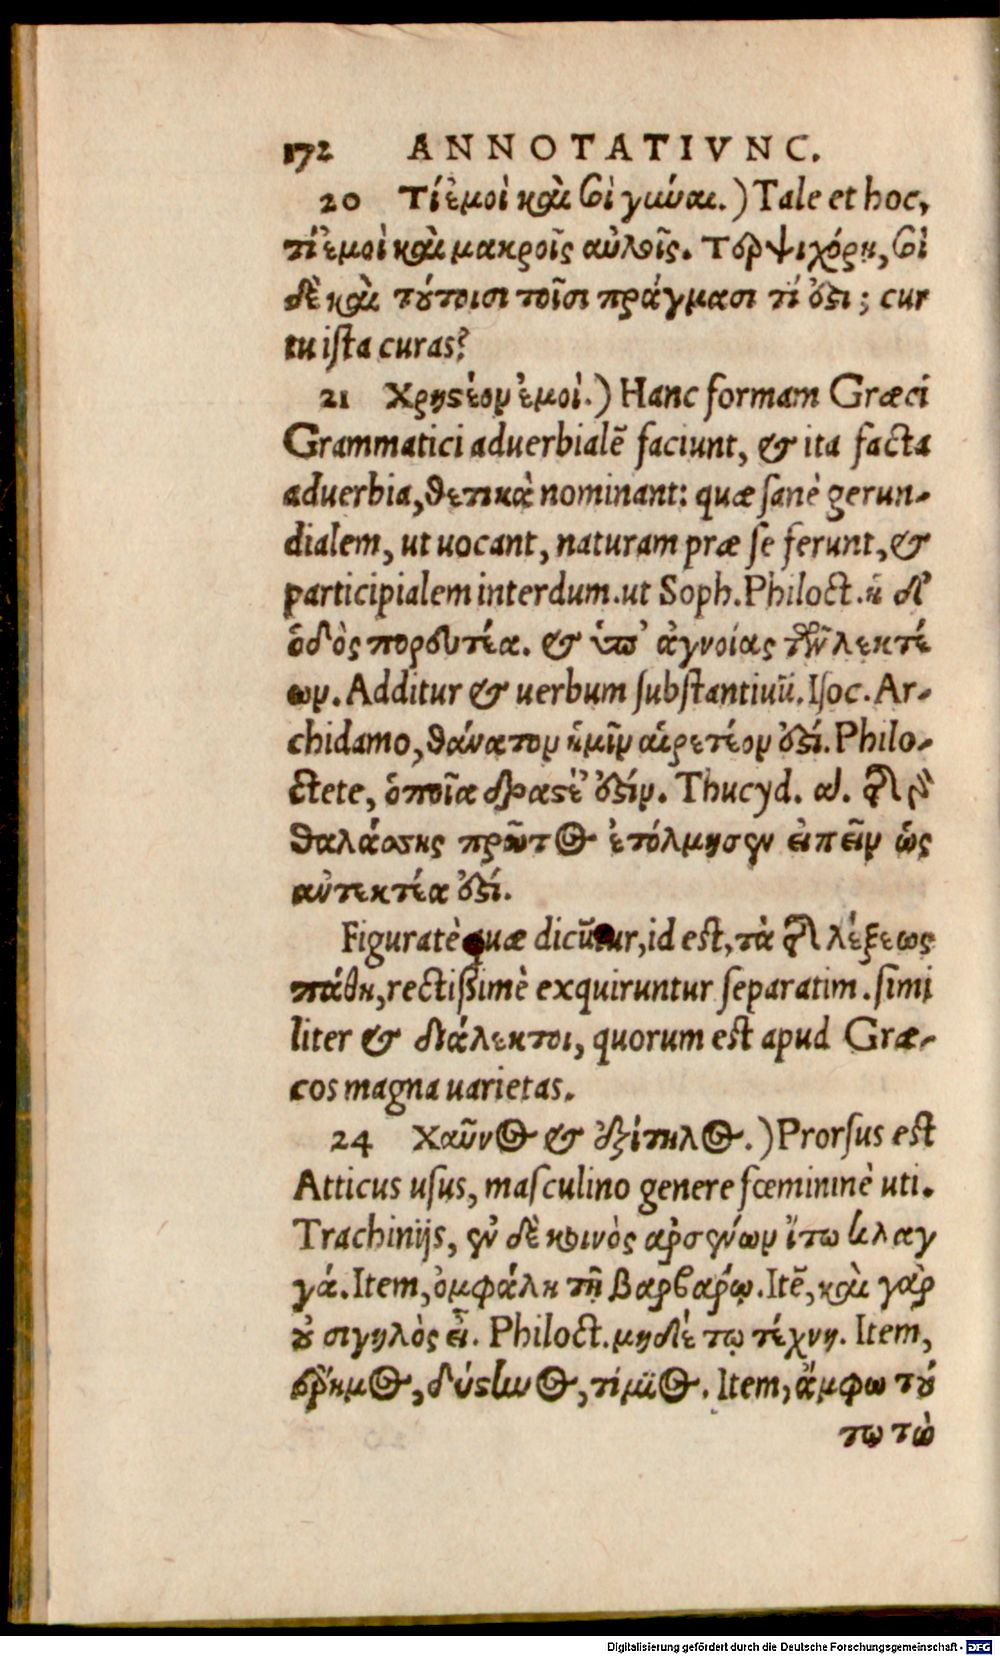 172 ANNOTATIVNC.
20 Τί ἐμοὶ καὶ σοὶ γύναι.) Tale et hoc,
τί ἐμοὶ καὶ μακροῖς αὐλοῖς. Τερψιχόρη, σοὶ
δὲ καὶ τούτοισι τοῖσι πράγμασι τί ἐστι; cur
tu ista curas?
21 Χρηστέον ἐμοί.) Hanc formam Græci
Grammatici aduerbialē faciunt, & ita facta
aduerbia, θετικὰ nominant: quæ sanè gerun-
dialem, ut uocant, naturam præ se ferunt, &
participialem interdum. ut Soph. Philoct. ἡ δ'
ὁδὸς πορευτέα. & ὑπ' ἀγνοίας τῶν λεκτέ
ων. Additur & uerbum substantiuū. Isoc. Ar-
chidamo, θάνατον ἡμῖν αἱρετέον ἐστί. Philo-
ctete, ὁποῖα δραστέ' ἐστίν. Thucyd. α. τῆς
θαλάσσης πρῶτος ἐτόλμησεν εἰπεῖν ὡς
αὐτεκτέα ἐστί.
Figuratè quæ dicūtur, id est, τὰ τῆς λέξεως
πάθη, rectissimè exquiruntur separatim. simi
liter & διάλεκτοι, quorum est apud Græ-
cos magna uarietas.
24 Χαῦνος & ἐξίτηλος.) Prorsus est
Atticus usus, masculino genere fœmininè uti.
Trachinijs, ἐν δὲ κοινὸς ἀρσένων ἴτω κλαγ
γά. Item, ὀμφάλη τῇ βαρβάρῳ. Itē, καὶ γὰρ
οὐ σιγηλὸς εἶ. Philoct. μηδὲ τῳ τέχνῃ. Item,
ἔρημος, δύστηνος, τίμιος. Item, ἄμφω τού
τω τὼ
Digitalisierung gefördert durch die Deutsche Forschungsgemeinschaft - DFG